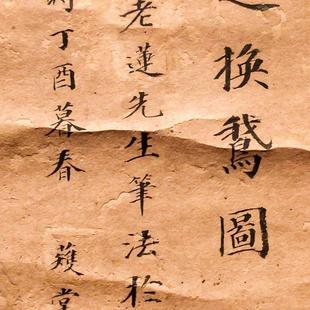 換鵞圖
老蓮先生筆法於
丁酉暮春 蒦堂